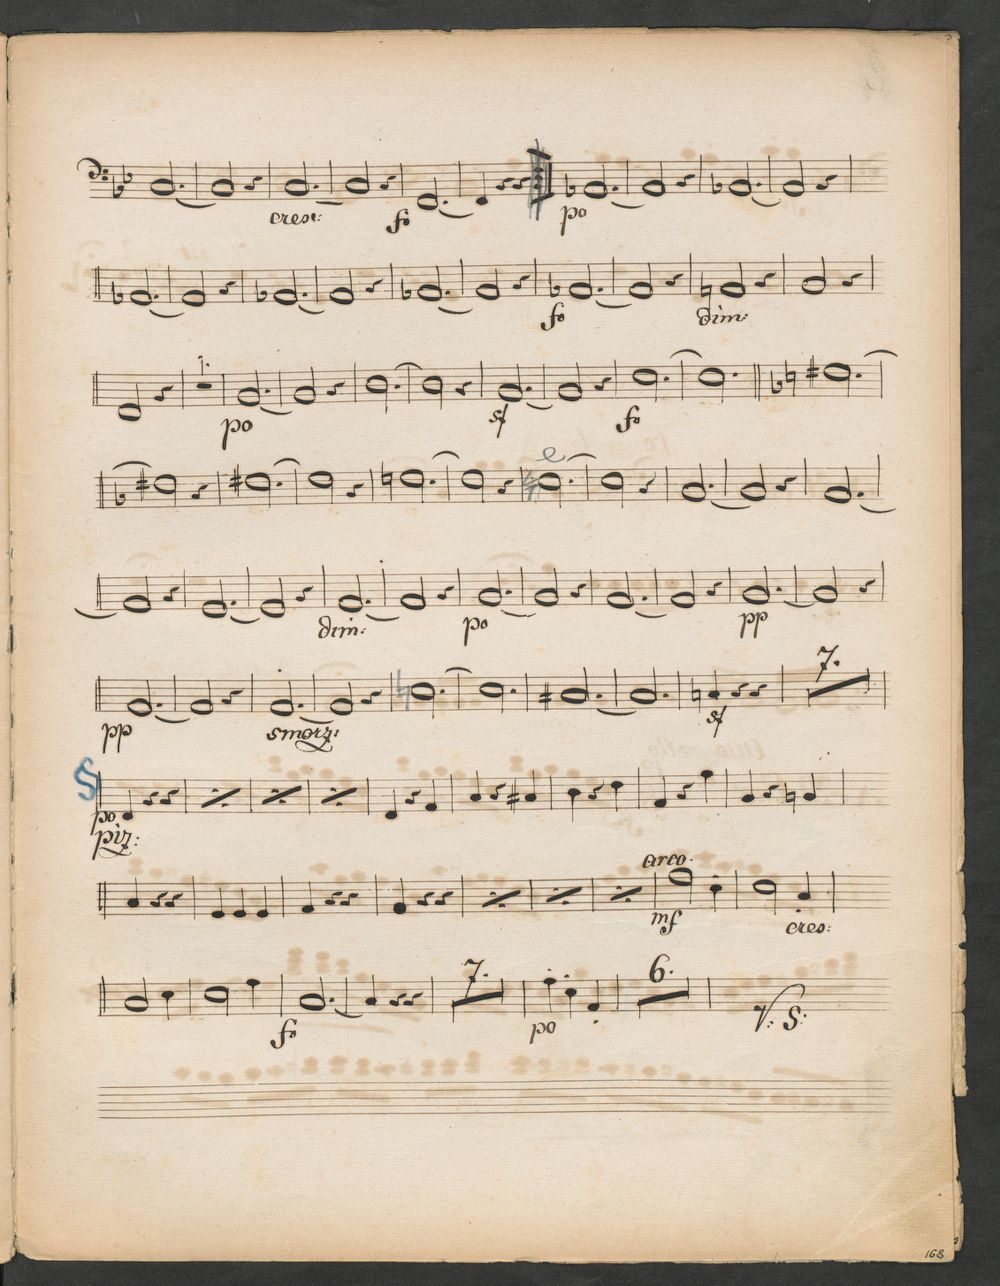 cresc: fo po
fo dim:
1.
po sf fo
e
dim: po pp
7.
pp smorz: sf
po
piz:
arco.
mf cres:
7. 6.
fo po V: S:
168